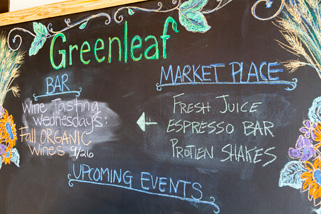 Greenleaf
BAR
Wine Tasting
Wednesdays:
Fall ORGANIC
Wines 9/26
MARKET PLACE
FRESH JUICE
ESPRESSO BAR
PROTIEN SHAKES
UPCOMING EVENTS